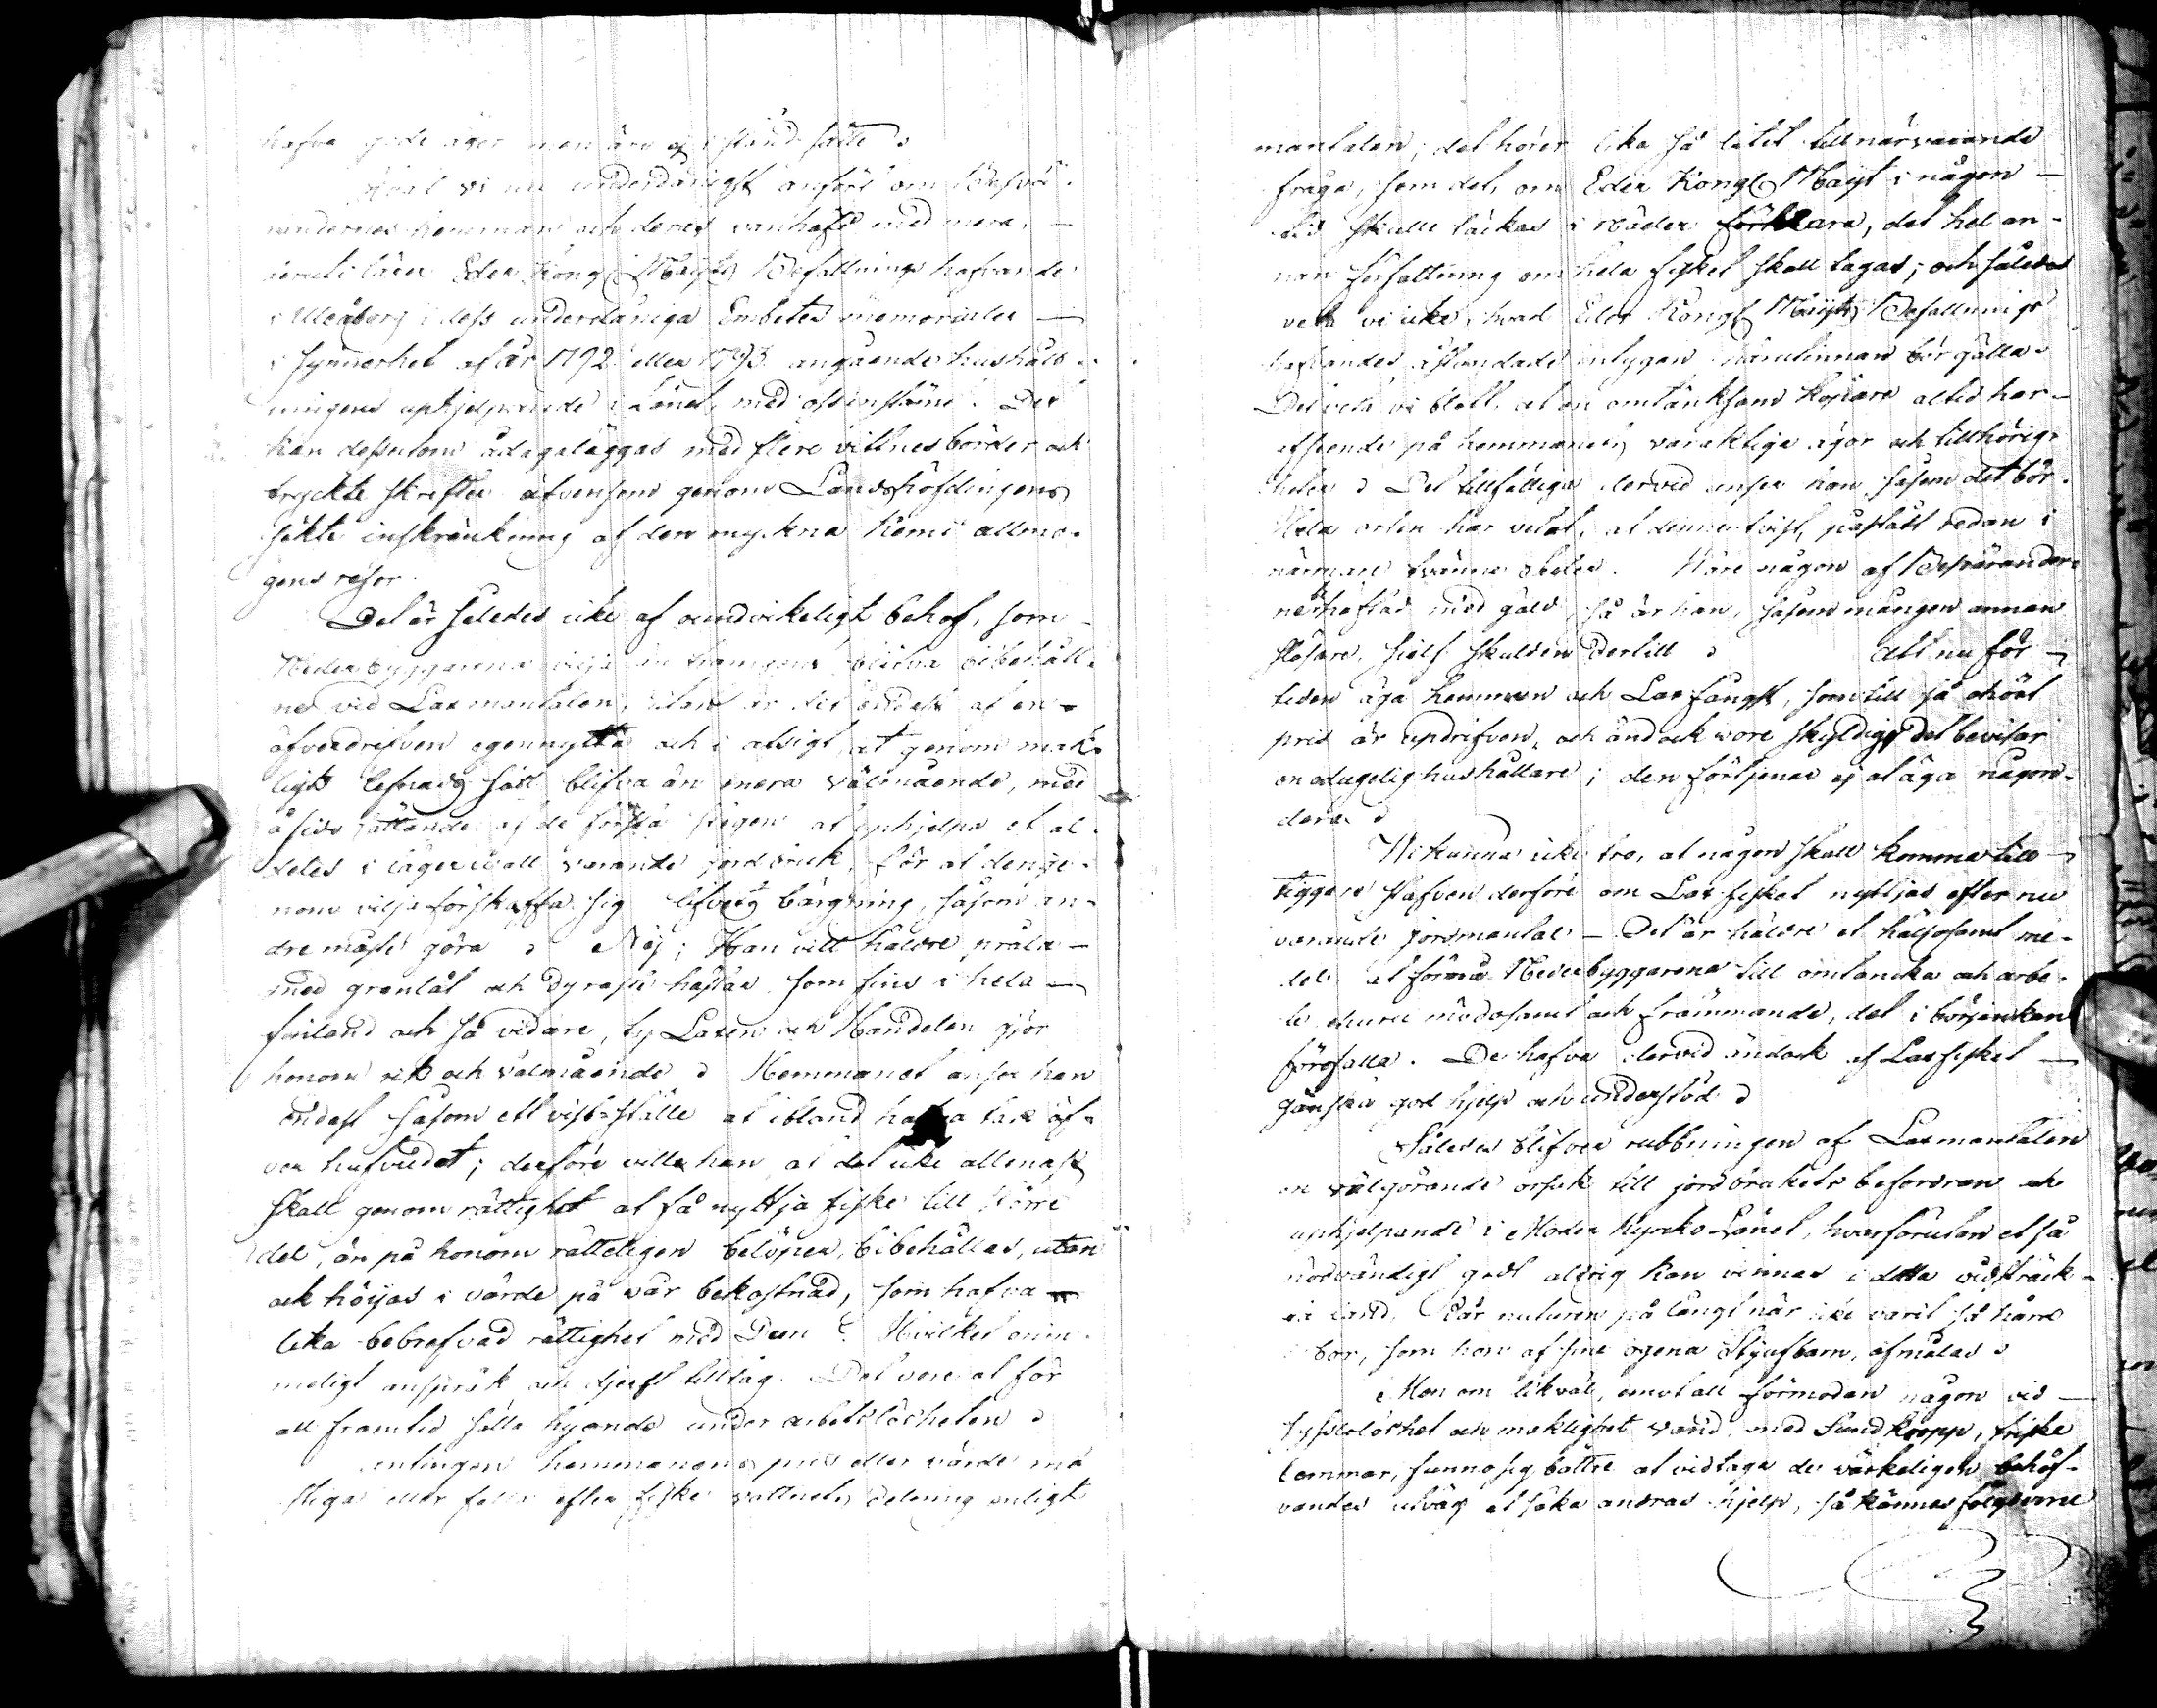 hafva gode äger men äro ej i stånd satte
Hvad vi nu underdånigst anfört om Besvä-
randernes hemman och deras vanhäfd med mera,
lärer Eder Kongl. Maijts Befallningshafvande
i Uleåborg i dess underdåniga Embetes memorialer
i synnerhet af år 1792 eller 1793 angående hushåld-
ningens uphjelpande i Länet, med oss instäme. Det
kan dessutom ådagaläggas med flere vittnesbörder och
tryckte skrifter äfvensom genom Landshöfdingens
sökte inskränkning af den myckna Kemi allmo-
gens resor.
Det är således icke af oundvikeligt behof, som
Nederbyggarena vilja bibehåll-
ne vid Laxmantalen, utan är det endast af en
öfverdrifven egennytta och i afsigt at genom mak-
ligt lefnads sätt blifva än mera välmående, med
åsido sättande af de första stegen at uphjelpa et al-
deles i lägervall varande jordbruk, för at derige-
nom vilja förskaffa sig lifvets bärgning, såsom an-
dre måste göra Nej; Han vill häldre pråla
med granlåt och dyraste hästar som fins i hela
finland och så vidare, ty Laxen och Handelen gjör
honom rik och välmående Hemmanet anser han
endast såsom ett viste ställe at ibland hafva tak öf-
ver hufvudet; derföre vill han at det icke allenast
skall genom rättighet at få nyttja fiske till större
del, än på honom rätteligen belöper, bibehållas, utan
ock höijas i värde på vår bekostnad, som hafva
lika bebrefvad rättighet med Dem? Hvilket orim-
meligt anspråk och djerft tilltag. Det vore at för
all framtid sätta hyende under arbetslösheten
antingen hemmanens pris eller värde må
stiga eller falla efter fiske vattnets delning enligt
mantalen; det hörer lika så litet till närvarande
fråga, som det, om Eder Kongl. Maijt i någon
tid skulle täckas i Nåder förklara, det hel an-
nan författning om hela fisket skall tagas; och således
veta vi icke, hvad Eder Kongl. Maijts Befallnings
hafvandes åstundade bör gälla.
Det veta vi blott at en omtänksam Köpare altid har
afseende på hemmanets varaktiga ägor och tillhörig-
heter Det tillfälliga dervid anser han såsom det bör.
Hela orten har vetat, at denna tvist påstått redan i
närmare tvänne Vore någon af Besväranderne
häftad med gäld, så är han, såsom mången annan
slösare, sjelf skulden dertill Att nu för
tiden äga hemman och Laxfångst, som till så ohört
pris är updrifven, och ändock vore skyldig, det bevisar
en odugelig hushållare; den förtjenar ej at äga någon-
dera
Vi kunna icke tro, at någon skall komma till
tiggare stafven derföre om Lax fisket nyttjas efter nu
varande jordmantal — Det är häldre et hälsosamt me-
del at förmå Nederbyggarena till omtanka och arbe-
te ehuru mödosamt och främmande, det i början kan
förefalla. De hafva dervid ändock af Laxfisket
ganska god hjelp och understöd
Således blifver rubbningen af Laxmantalen
en välgörande orsak till jordbrukets befordran och
uphjelpande i Moder Kyrko Länet, hvarförutan et så
nödvändigt godt aldrig kan vinnas i detta vidsträck-
ta land, där naturen på långt när icke varit så hård
mor, som hon af sine egena Styufbarn, afmålas
Men om likväl, emot all förmodan någon vid
sysslolöshet och maklighet vand, med Sund kropp, friske
lemmar, funno sig bättre at vidtaga de värkeligen behöf-
vandes utväg at söka andras hjelp, så kännas följderne